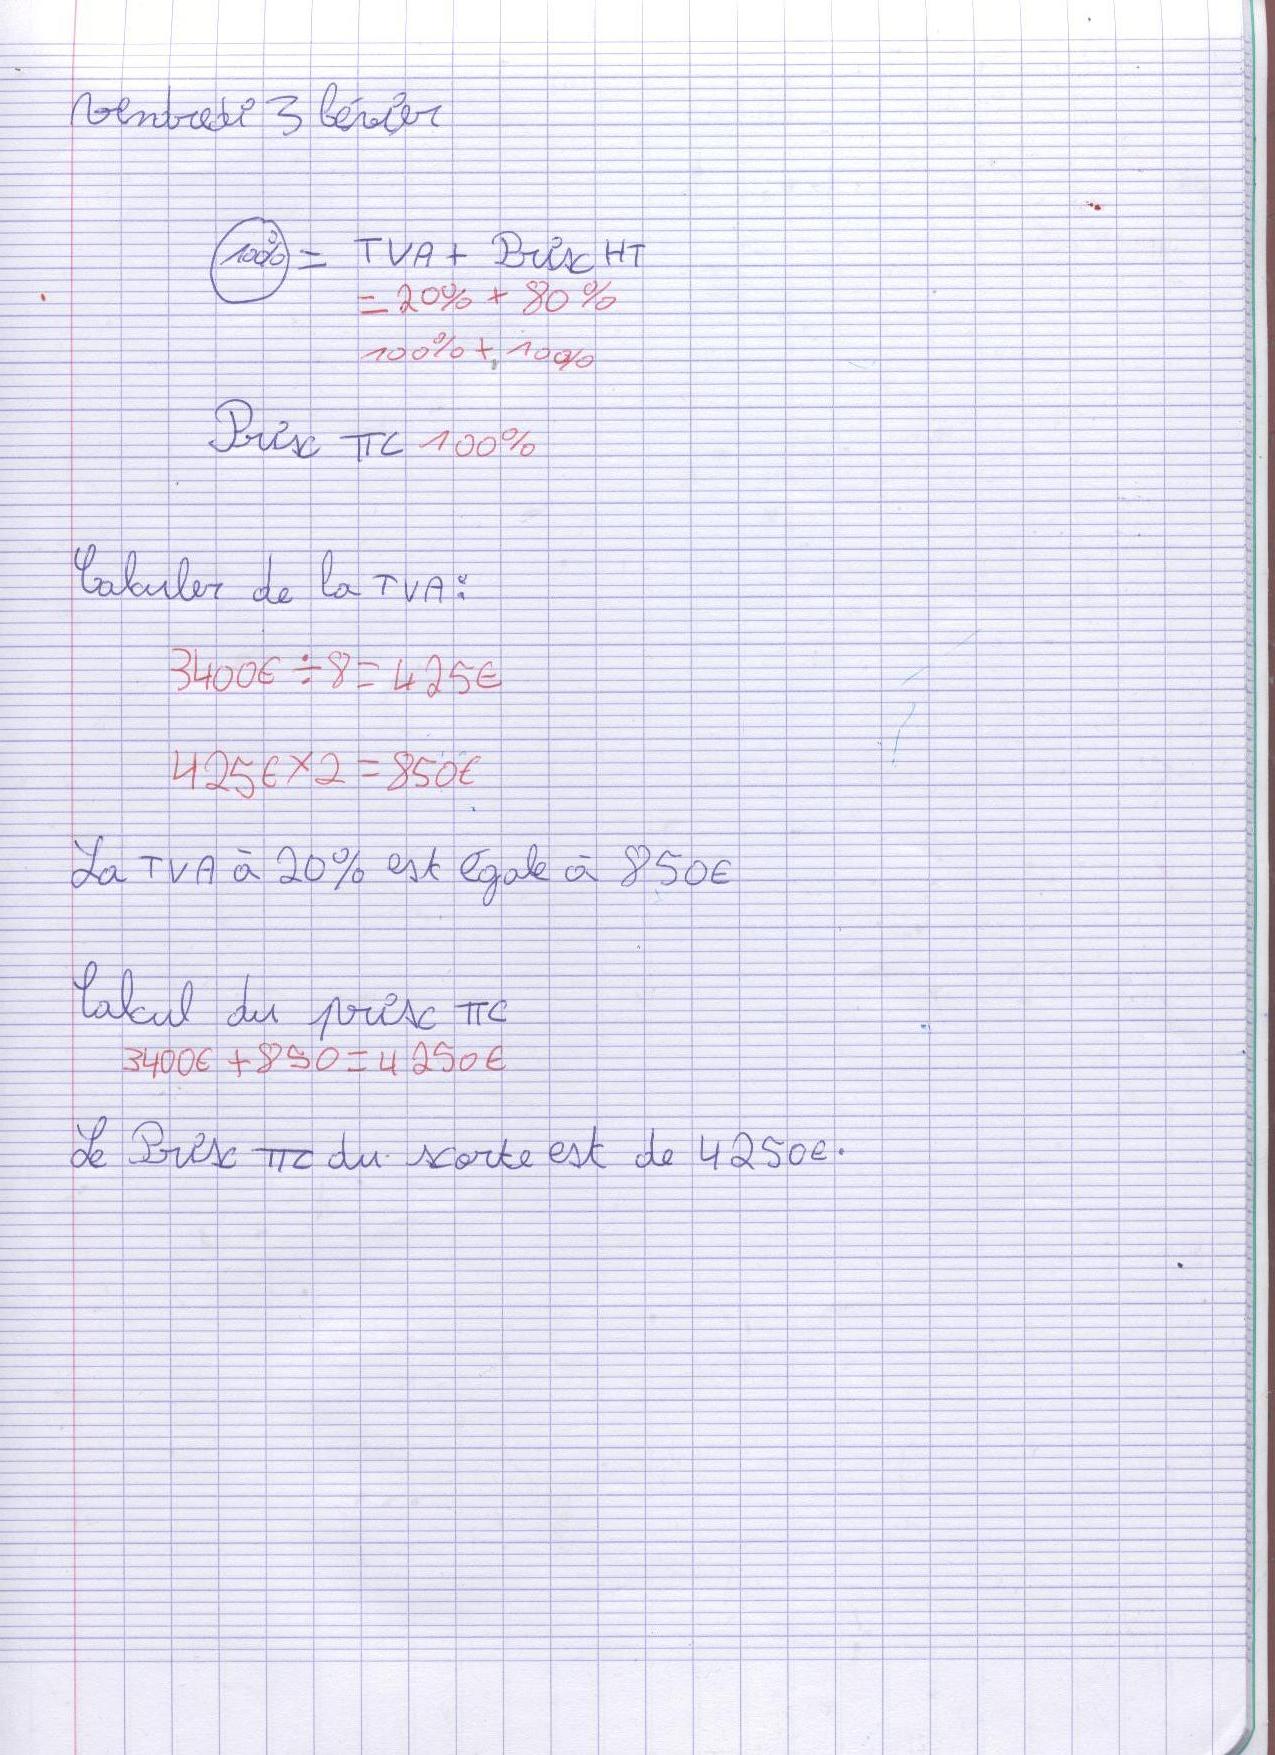 Vendredi 3 février
100% = TVA + Prix HT
= 20% + 80%
100% + 100%
Prix TTC 100%
Calculer de la TVA :
3400€ ÷ 8 = 425€
425€ × 2 = 850€
La TVA à 20% est égale à 850€
Calcul du prix TTC
3400€ + 850 = 4250€
Le Prix TTC du scorte est de 4250€.